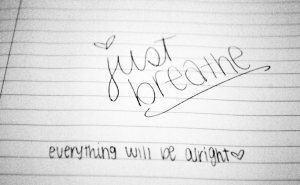 just
breathe
everything will be alright♡